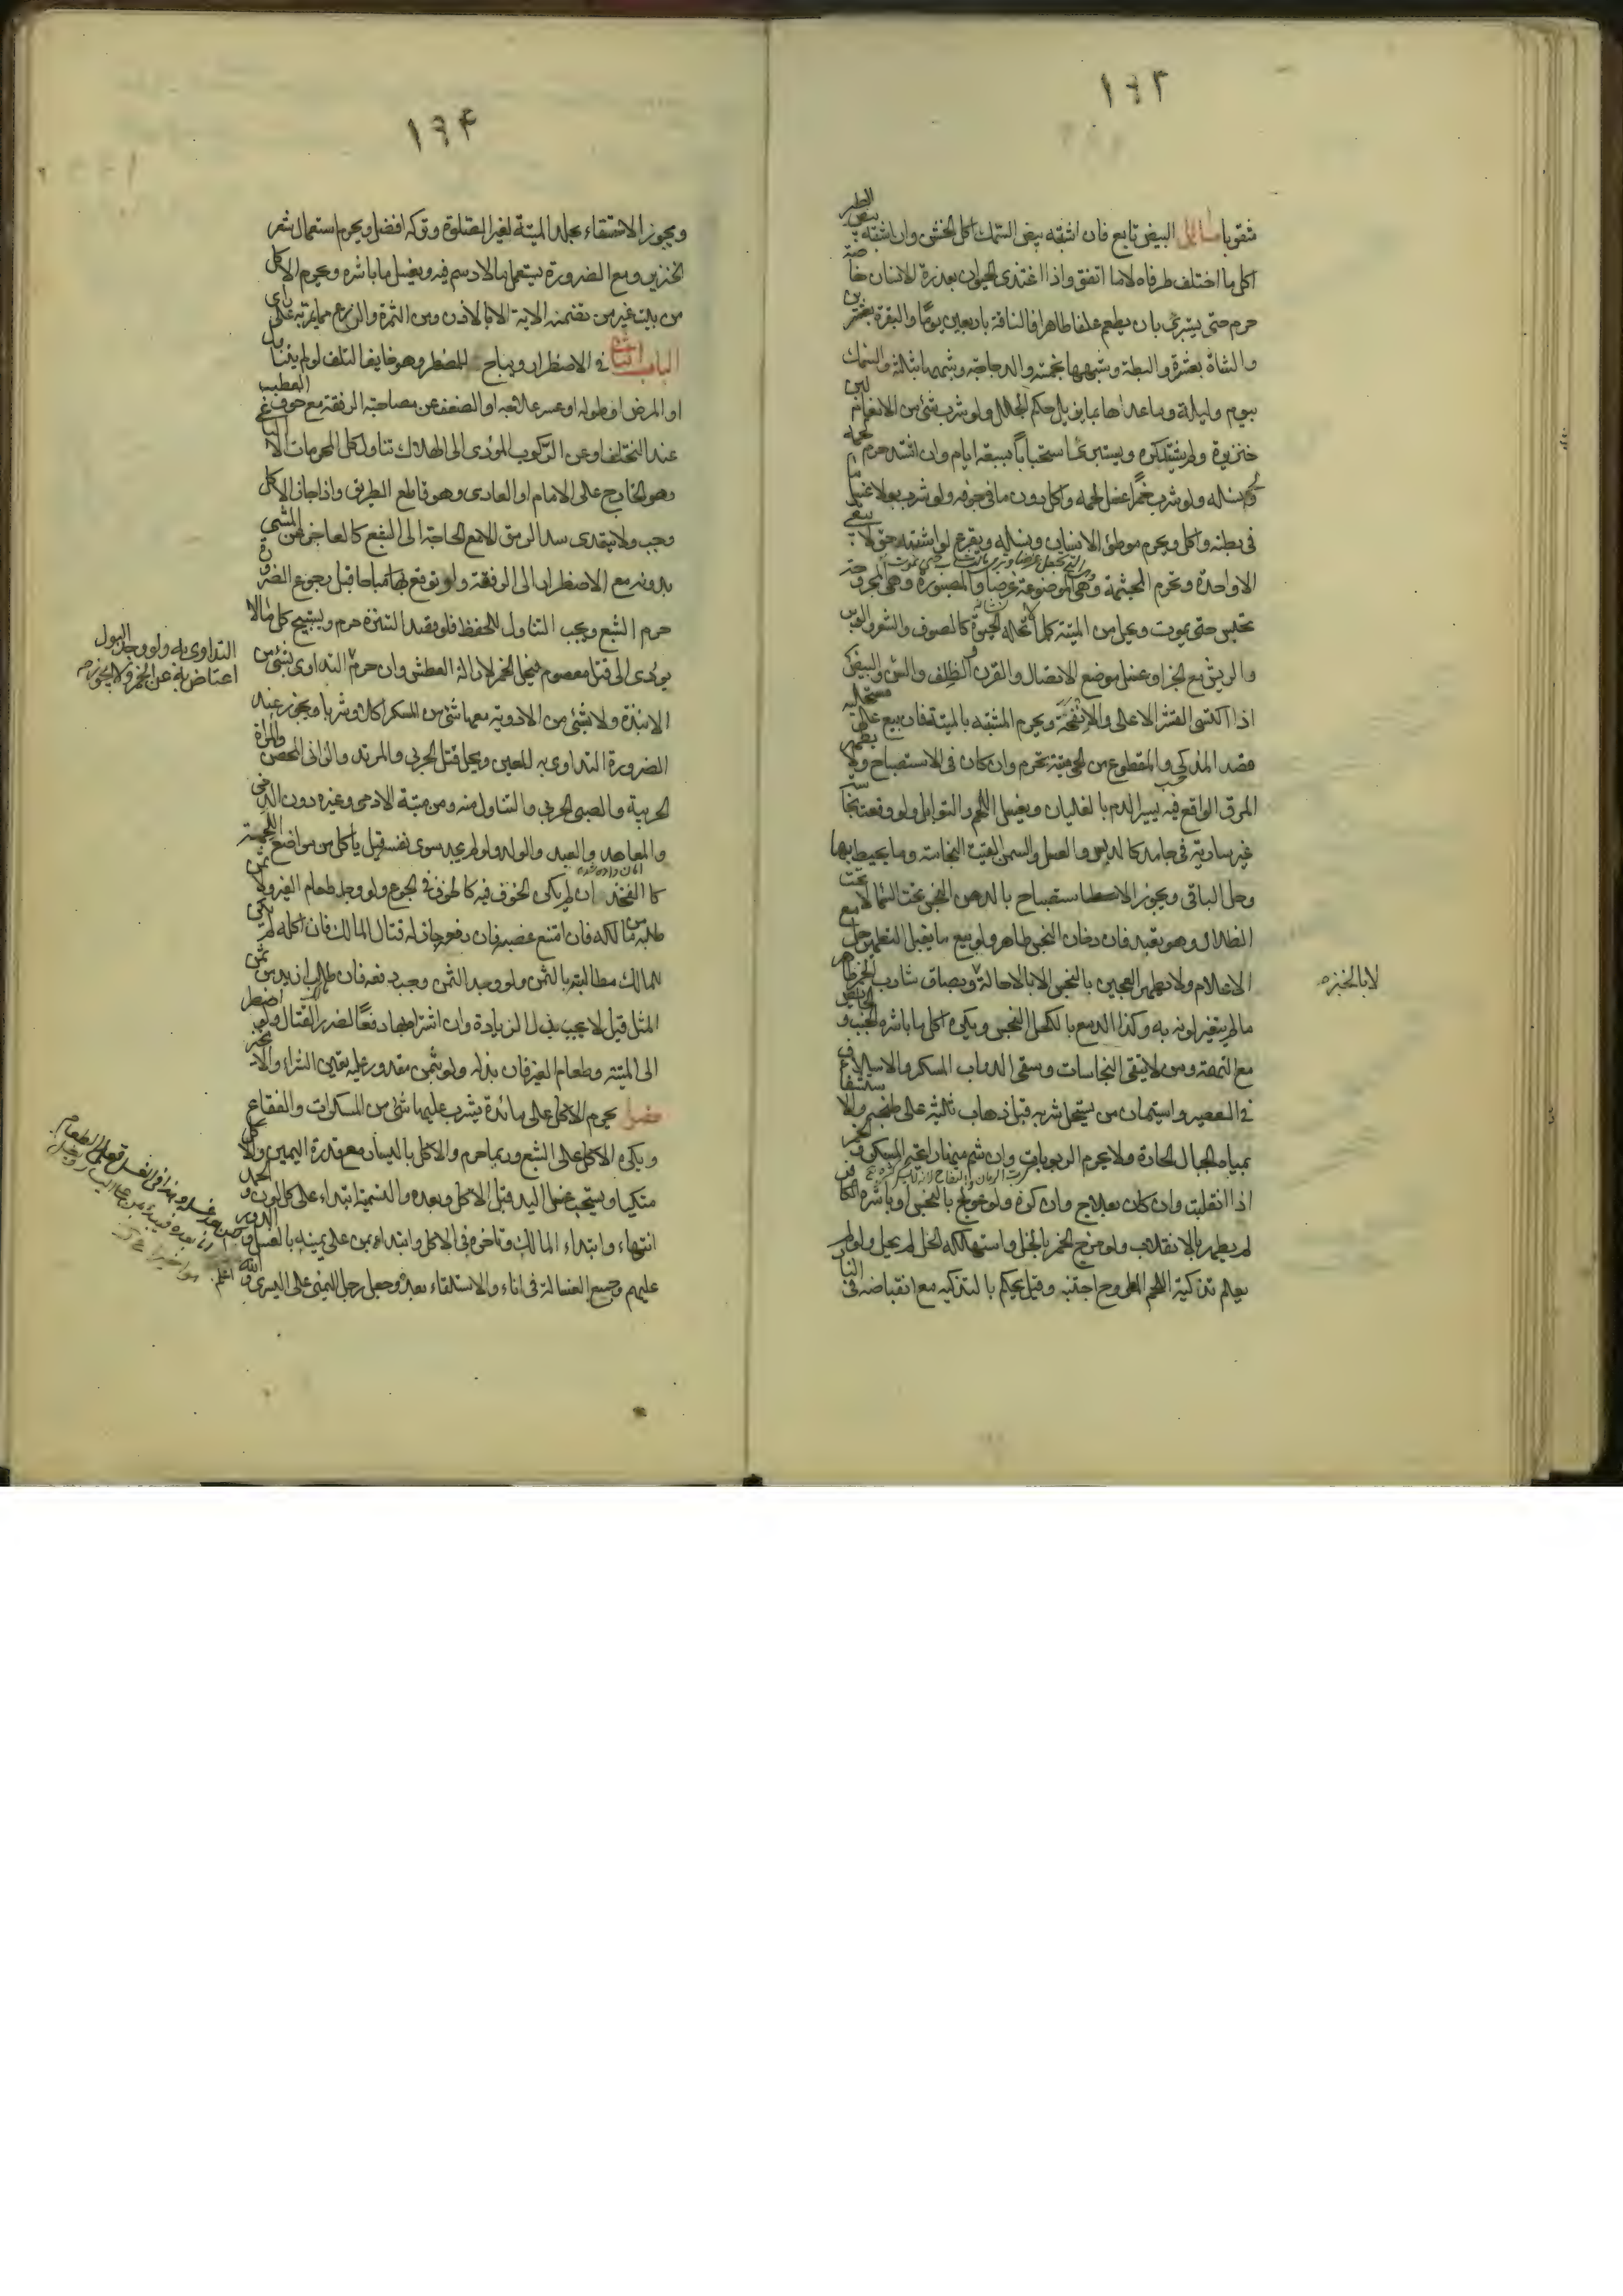 ١٦٣
مثقوبا مسائل البيض تابع فان اشتبه بيض السمك اكل الخشن وان اشتبه بيض الطير
اكل ما اختلف طرفاه لا ما اتفق واذا اغتذى الحيوان بعذرة الانسان خاصة
حرم حتى يستبرئ بان يطعم علفا طاهرا فالناقة باربعين يوما والبقرة بعشرين
والشاة بعشرة والبطة وشبهها بخمسة والدجاجة وشبهها بثلثة والسمك
بيوم وليلة وما عداها بما يزيل حكم الجلل ولو شرب شئ من الانعام لبن
خنزيرة ولم يشتد كره ويستبرئ استحبابا بسبعة ايام وان اشتد حرم لحمه
ونسله ولو شرب خمرا غسل لحمه واكل دون ما في جوفه ولو شرب بولا غسل ما
في بطنه واكل ويحرم موطوئ الانسان ونسله ويقرع لو اشتبه حتى لا يبقى
الا واحدة وتحرم المجثمة وهي الموضوعة غرضا والمصبورة وهي المجروحة
تحبس حتى يموت ويحل من الميتة كلما لا تحله الحيوة كالصوف والشعر والوبر
والريش مع الجز او غسل موضع الاتصال والقرن والظلف والسن والبيض
اذا اكتسى القشر الاعلى والانفحة ويحرم المشتبه بالميتة فان بيع على مستحله
قصد المذكى والمقطوع من الحي ميتة تحرم وان كان في الاستصباح ولا يطهر
المرق الواقع فيه يسير الدم بالغليان ويغسل اللحم والتوابل ولو وقعت نجاسة
غير سارية في جامد كالدبس والعسل والسمن القيت النجاسة وما يحيط بها
وحل الباقي ويجوز الاستصباح بالدهن النجس تحت السماء لا تحت
الظلال وهو تعبد فان دخان النجس طاهر ولو بيع ما يقبل التطهير حل مع
الاعلام ولا يطهر العجين بالنجس الا بالاحالة وبصاق شارب الخمر طاهر
لا بالخبزه
ما لم يتغير لونه به وكذا الدمع بالكحل النجس ويكره اكل ما باشره الجنب والحائض
مع التهمة ومن لا يتقى النجاسات وسقى الدواب المسكر والاسلاف
في العصير واستيمان من يستحل شربه قبل ذهاب ثلثيه على طبخه والاستشفاء
بمياه الجبال الحارة ولا يحرم الربوبات وان شم منها رائحة المسكر والخمر
اذا انقلبت وان كان بعلاج وان كره ولو عولج بالنجس او باشره الكافر
لم يطهر بالانقلاب ولو مزج الخمر بالخل واستهلكه الخل لم يحل ولو لم
يعلم تذكية اللحم المطروح اجتنب وقيل يحكم بالتذكية مع انقباضه في النار
١٦٤
ويجوز الاستقاء بجلد الميتة لغير الصلوة وتركه افضل ويحرم استعمال شعر
الخنزير ومع الضرورة يستعمل ما لا دسم فيه ويغسل ما باشره ويحرم الاكل
من بيت غير من تضمنه الاية الا بالاذن ومن الثمرة والزرع مما يمر به على راى
الباب الثالث في الاضطرار ويباح للمضطر وهو خايف التلف لو لم يتناول
او المرض او طوله او عسر علاجه او الضعف عن مصاحبة الرفقة مع خوف العطب
عند التخلف او عن الركوب المؤدى الى الهلاك تناول كل المحرمات الا الباغي
وهو الخارج على الامام او العادى وهو قاطع الطريق واذا جاز الاكل
وجب ولا يتعدى سد الرمق الا مع الحاجة الى الشبع كالعاجز عن المشى
بدونه مع الاضطرار الى الرفقة ولو توقع لها مباحا قبل رجوع الضرورة
حرم الشبع ويجب التناول للحفظ فلو قصد التنزه حرم ويستبيح كل ما لا
يودى الى قتل معصوم فيحل الخمر لازالة العطش وان حرم التداوى بشئ من
التداوى به ولو وجد البول
اعتاض به عن الخمر ولا يجوز
الانبذة ولا بشئ من الادوية معها شئ من المسكر اكلا وشربا ويجوز عند
الضرورة التداوى به للعين ويحل قتل الحربي والمرتد والزاني المحصن والمراة
الحربية والصبي الحربي والتناول منه ومن ميتة الادمى وغيره دون الذمى
والمعاهد والعبد والولد ولو لم يجد سوى نفسه قيل ياكل من مواضع اللحمية
كالفخذ ان لم يكن الخوف فيه كالخوف في الجوع ولو وجد طعام الغير ولا ثمن
طلبه من مالكه فان امتنع غصبه فان دفعه جاز له قتال المالك فان اكله لم يكن
للمالك مطالبته بالثمن ولو وجد الثمن وجب دفعه فان طلب ازيد من ثمن
المثل قيل لا يجب بذل الزيادة وان اشتراه بها دفعا لضرر القتال ولو اضطر
الى الميتة وطعام الغير فان بذله ولو بثمن مقدور عليه تعين الشراء والا تخير
فصل يحرم الاكل على مائدة يشرب عليها شئ من المسكرات والفقاع
ويكره الاكل على الشبع وربما حرم والاكل باليسار مع قدرة اليمين والاكل
متكيا ويستحب غسل اليد قبل الاكل وبعده والتسمية ابتداء على كل لون والحمد
انتهاء وابتداء المالك وتاخره في الاكل وابتداء من على يمينه بالغسل والدور
عليهم وجمع الغسالة في اناء والاستلقاء بعده وجعل رجل اليمنى على اليسرى والله اعلم